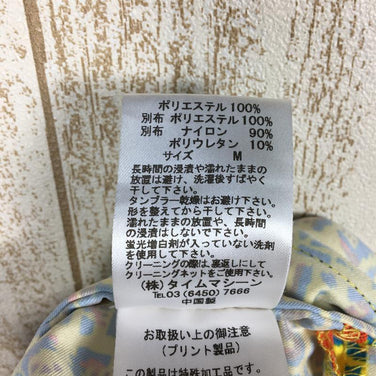 ポリエステル 100%
別布 ポリエステル 100%
別布 ナイロン 90%
ポリウレタン 10%
サイズ M
長時間の浸漬や濡れたままの
放置は避け、洗濯後すばやく
干して下さい。
タンブラー乾燥はお避け下さい。
形を整えてから干して下さい。
濡れたままの放置や、長時間
の浸漬はしないで下さい。
蛍光増白剤が入っていない洗剤
を使用して下さい。
クリーニングの際は、裏返しにして
クリーニングネットをご使用下さい。
(株)タイムマシーン
TEL03(6450)7666
中国製
お取扱い上の御注意
(プリント製品)
この製品は特殊加工品です。